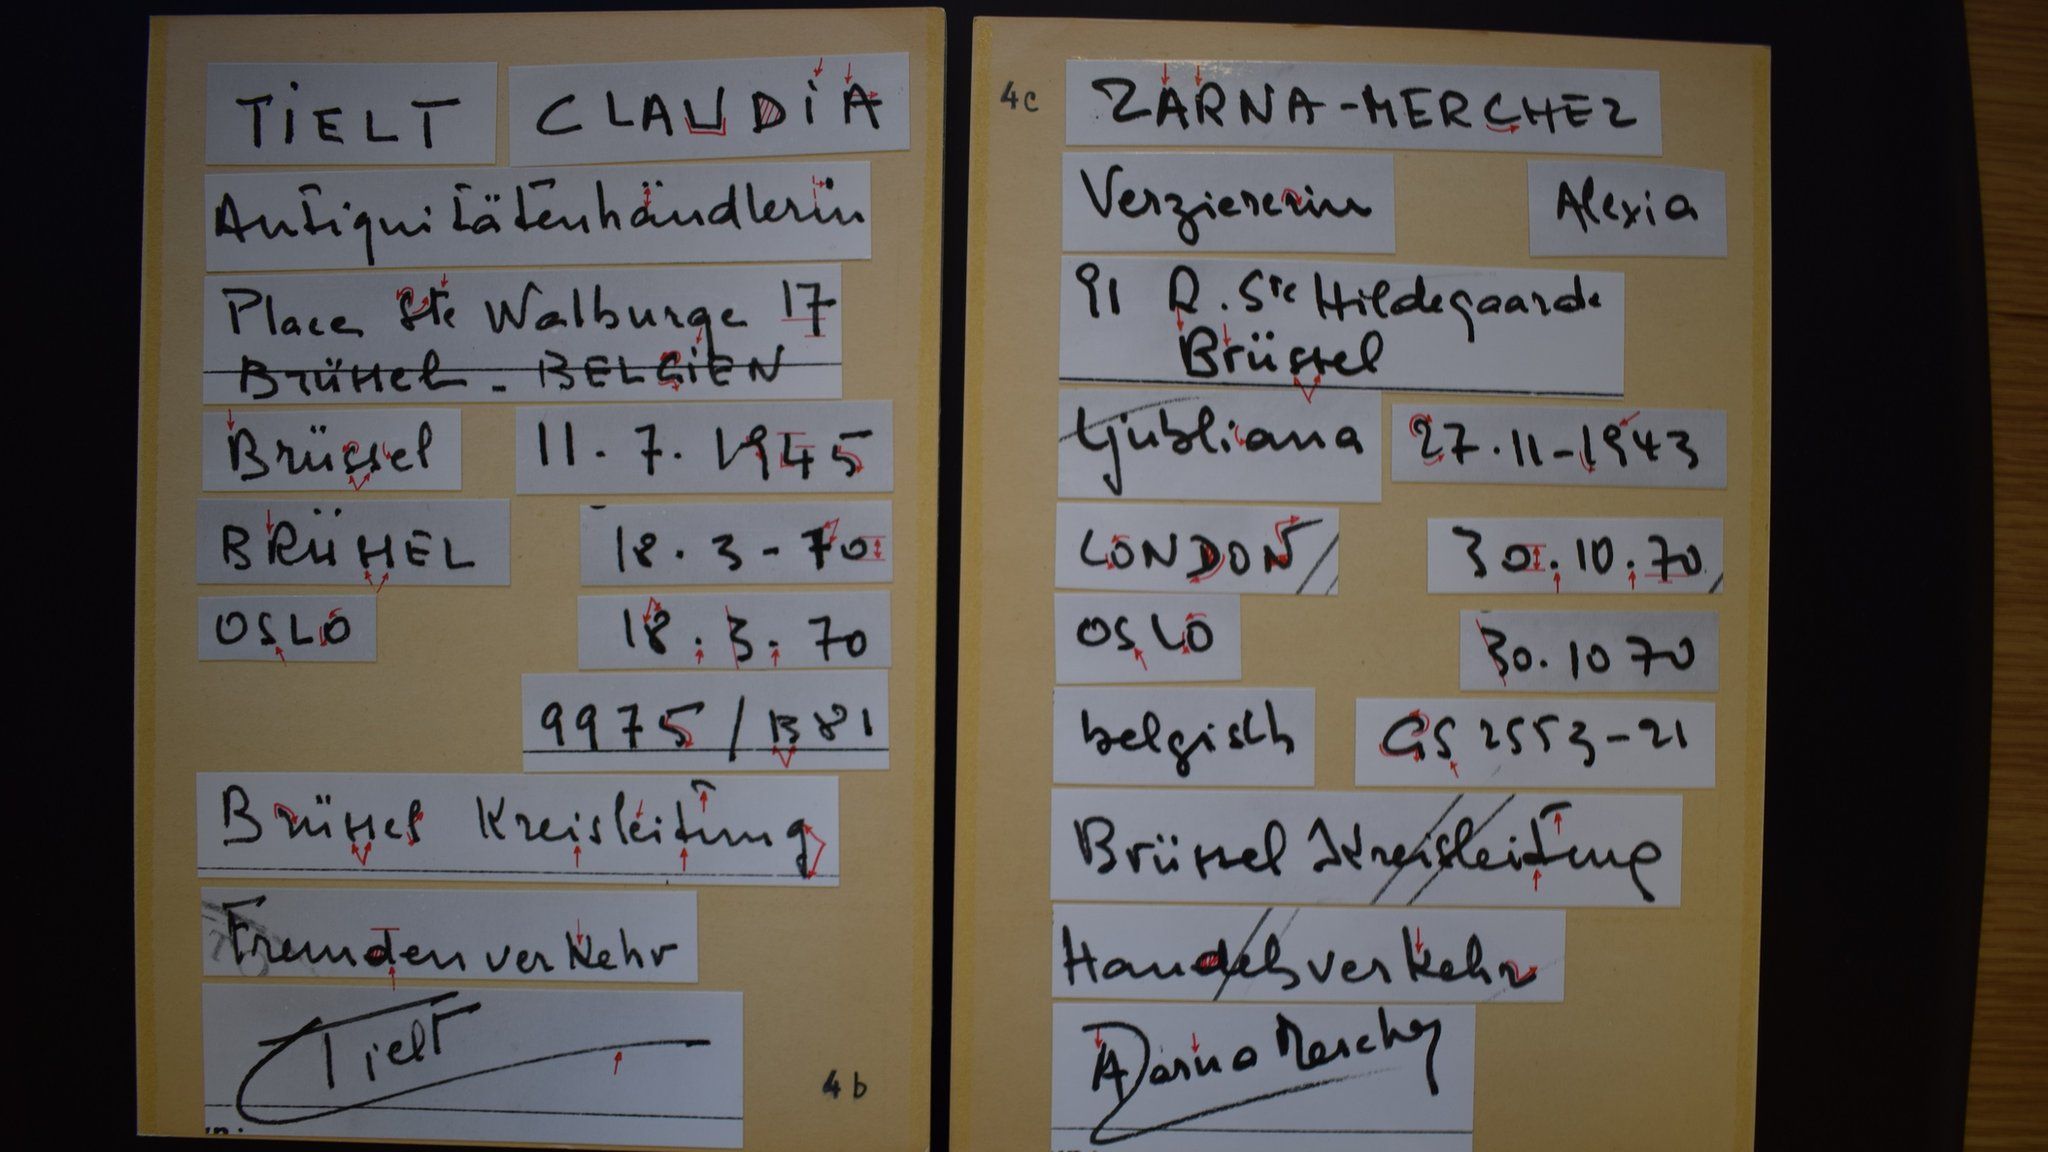 TiELT CLAUDiA
Antiquitätenhändlerin
Place Ste Walburge 17
Brüssel - BELGiEN
Brüssel 11.7.1945
BRÜSSEL 18.3-70
OSLO 18.3.70
9975/B81
Brüssel Kreisleitung
Fremdenverkehr
Tielt
4b
4c ZARNA-MERCHEZ
Verziererin Alexia
91 R. Ste Hildegaarde
Brüssel
Ljubliana 27.11-1943
LONDON 30.10.70
OSLO 30.1070
belgisch GS 2553-21
Brüssel Kreisleitung
Handelsverkehr